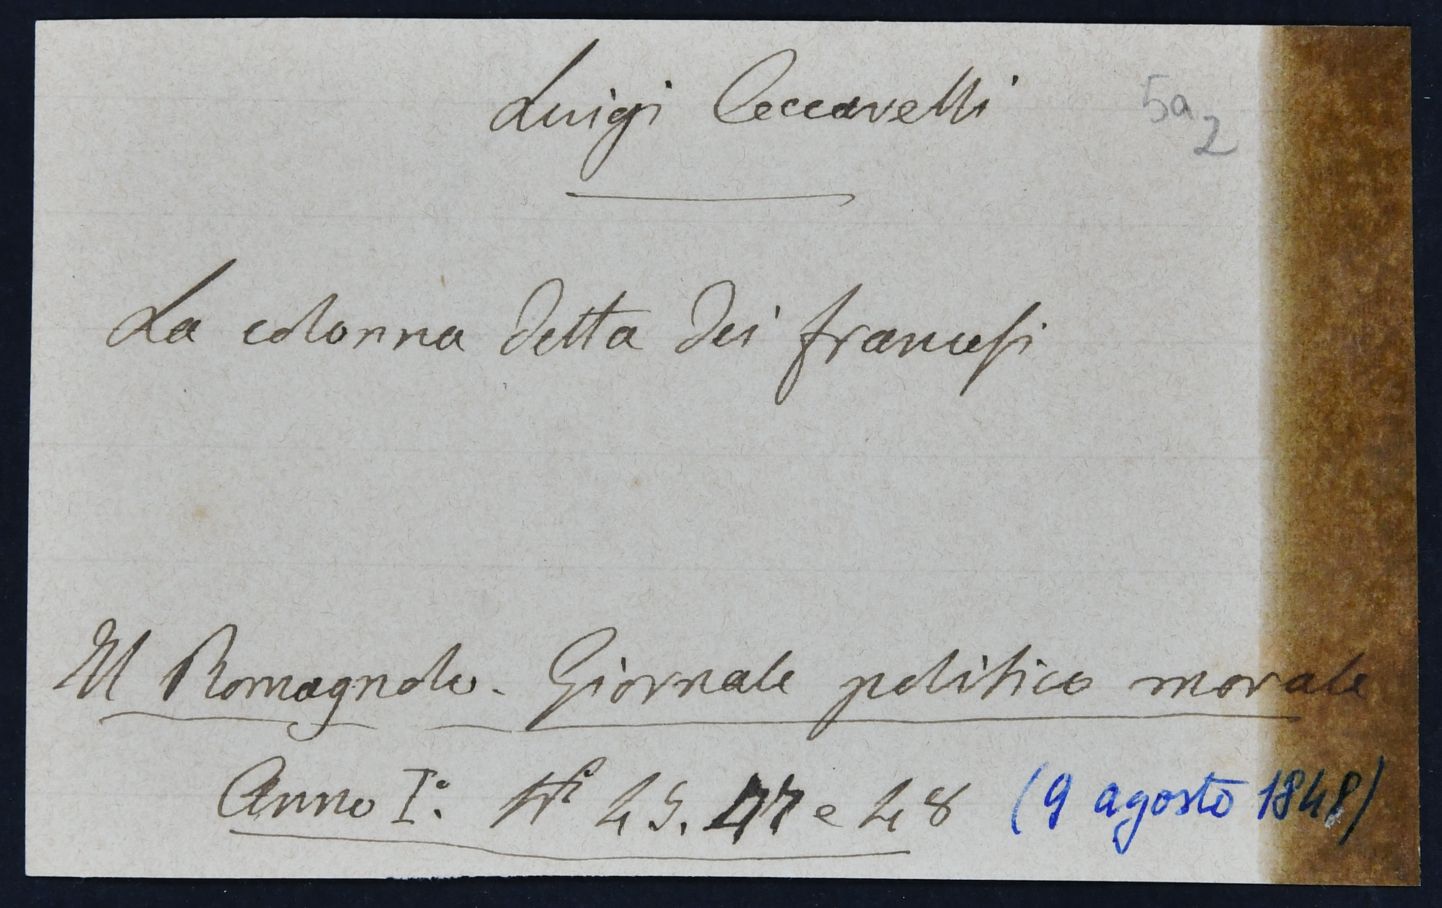 Luigi Ceccarelli
5a
2
La colonna detta dei francesi
Il Romagnolo. Giornale politico morale
Anno I°. Ni 45. 47 e 48 (9 agosto 1848)